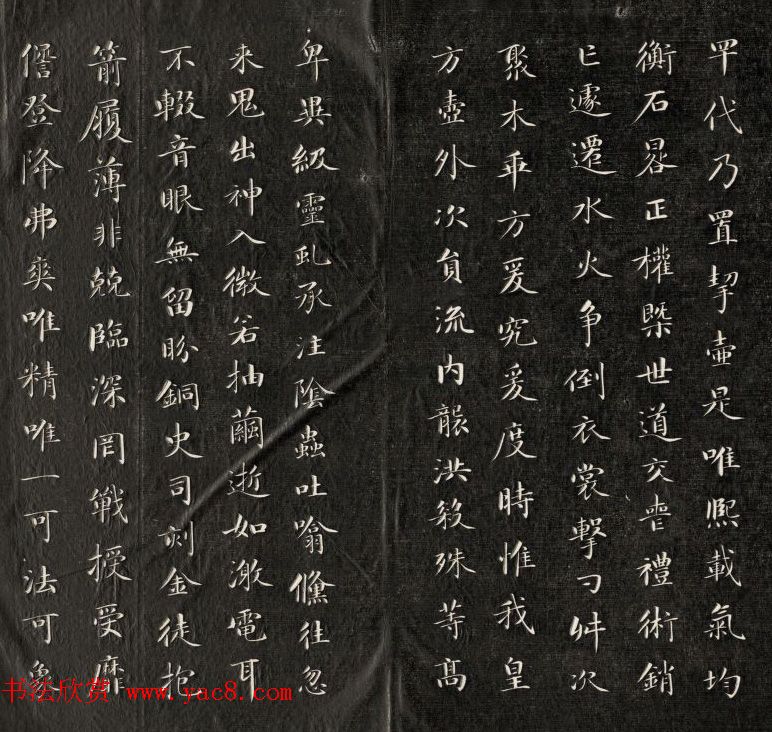 罕代乃置挈壺是唯熈載氣均
衡石晷正權槩世道交喪禮術銷
亡遽遷水火争倒衣裳擊刁舛次
聚木乖方爰究爰度時惟我皇
方壺外次員流内襲洪殺殊等髙
卑異級靈虬承注陰蟲吐噏儵往忽
来鬼出神入微若抽繭逝如激電耳
不輟音眼無留盼銅史司刻金徒抱
箭履薄非兢臨深罔戰授受靡
愆登降弗爽唯精唯一可法可象
书法欣赏 www.yac8.com